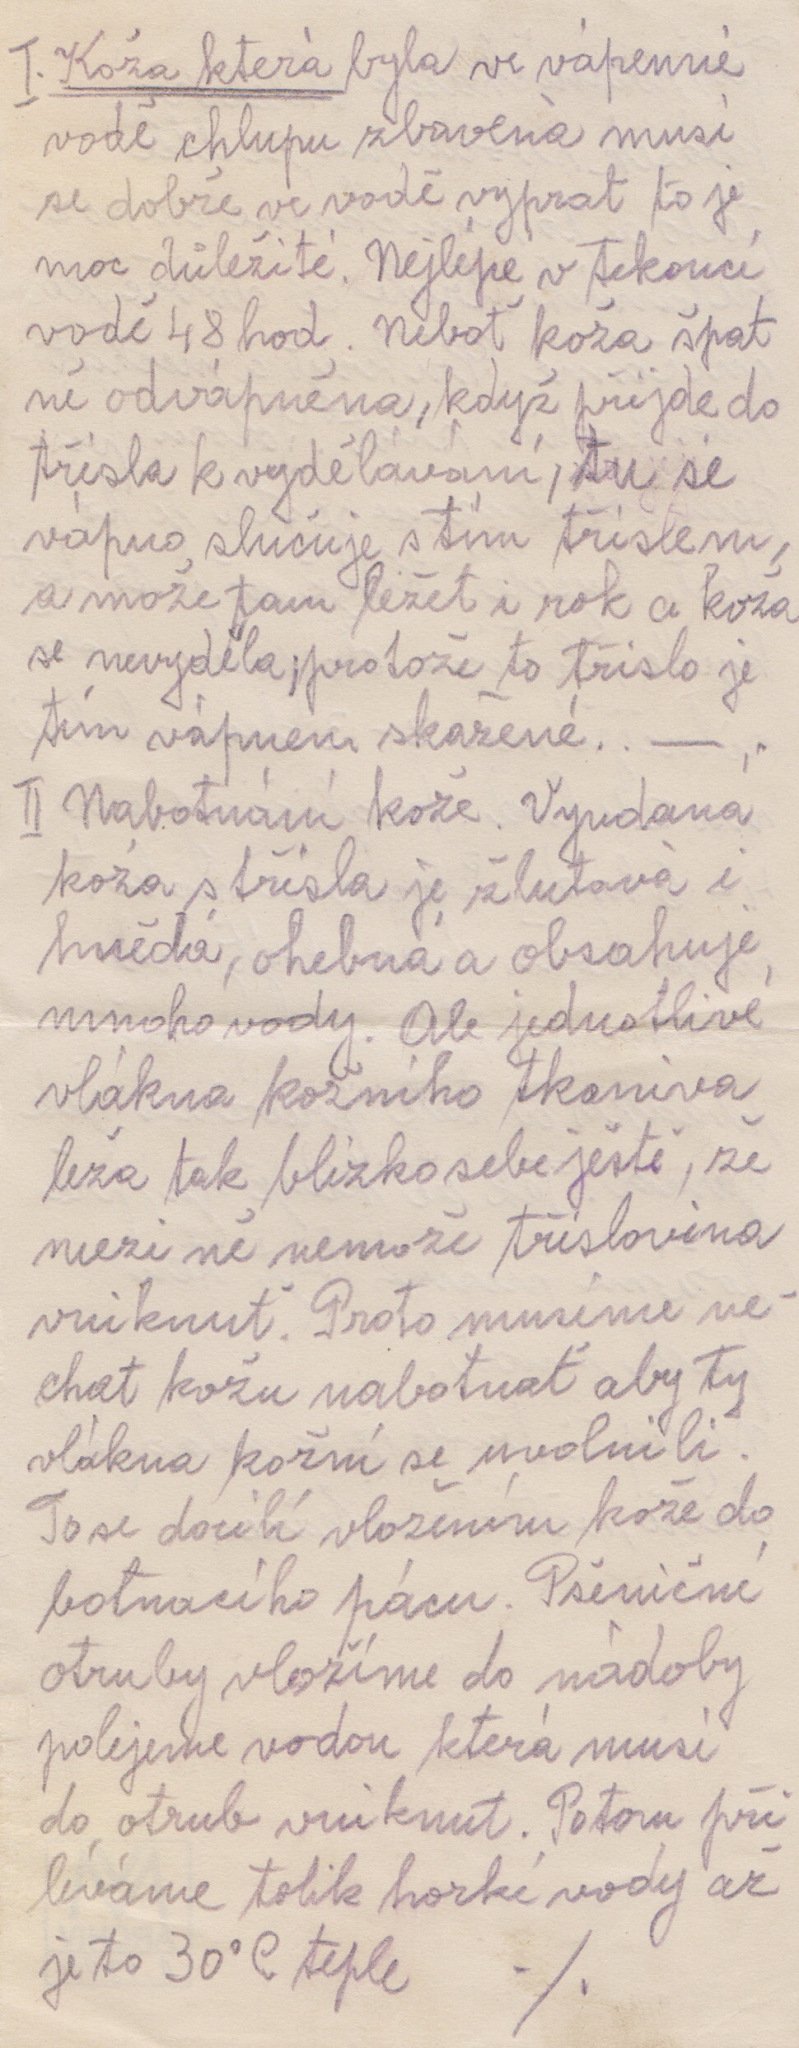 I. Koža která byla ve vápenné
vodě chlupu zbavena musí
se dobře ve vodě vyprat to je
moc důležité. Nejlépe v tekoucí
vodě 48 hod. Neboť koža špat
ně odvápněna, když přijde do
třísla k vydělávání, tu se
vápno slučuje s tím tříslem,
a može tam ležet i rok a koža
se nevyděla, protože to tříslo je
tím vápnem skažené. . — ,.
II Nabotnání kože. Vyndaná
koža s třísla je žlutavá i
hnědá, ohebná a obsahuje
mnoho vody. Ale jednotlivé
vlákna kožního tkaniva
leža tak blízko sebe ještě, že
mezi ně nemože tříslovina
vniknuť. Proto musíme ne-
chat kožu nabotnať aby ty
vlákna kožní se uvolnili.
To se docílí vložením kože do
botnacího pácu. Pšeničné
otruby vložíme do nádoby
polejeme vodou která musí
do otrub vniknut. Potom při
léváme tolik horké vody až
je to 30°C teple -/.